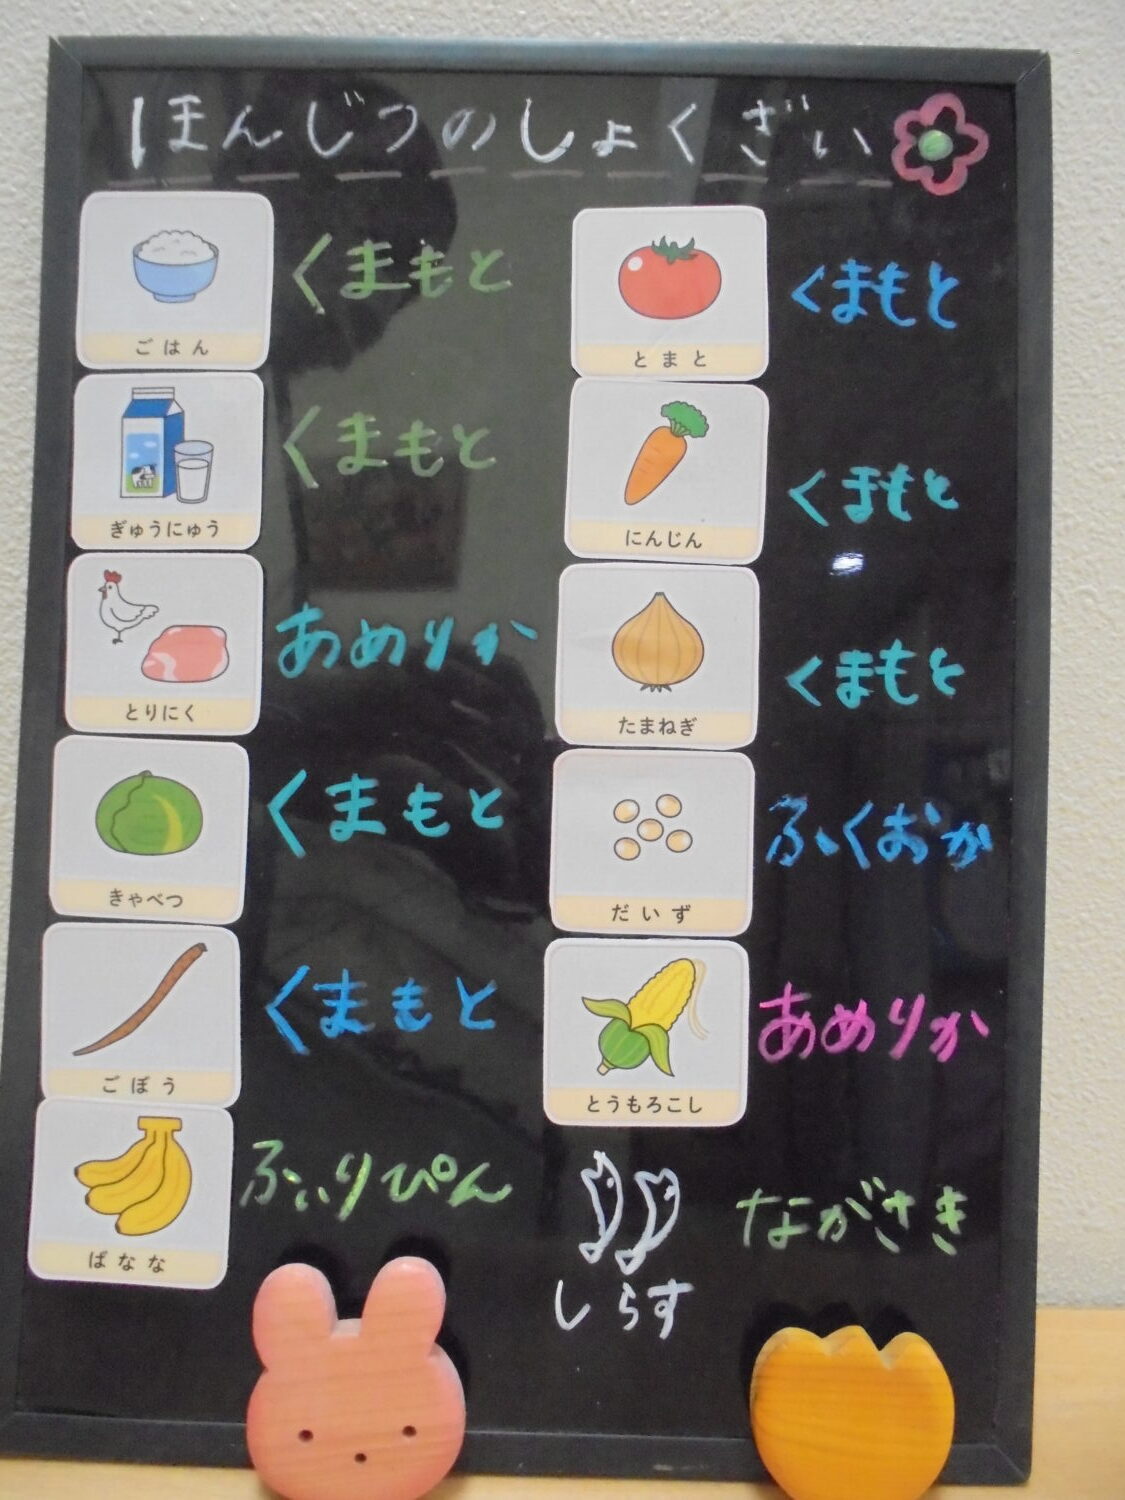 ほんじつのしょくざい
ごはん
くまもと
ぎゅうにゅう
くまもと
とりにく
あめりか
きゃべつ
くまもと
ごぼう
くまもと
ばなな
ふぃりぴん
とまと
くまもと
にんじん
くまもと
たまねぎ
くまもと
だいず
ふくおか
とうもろこし
あめりか
しらす
ながさき